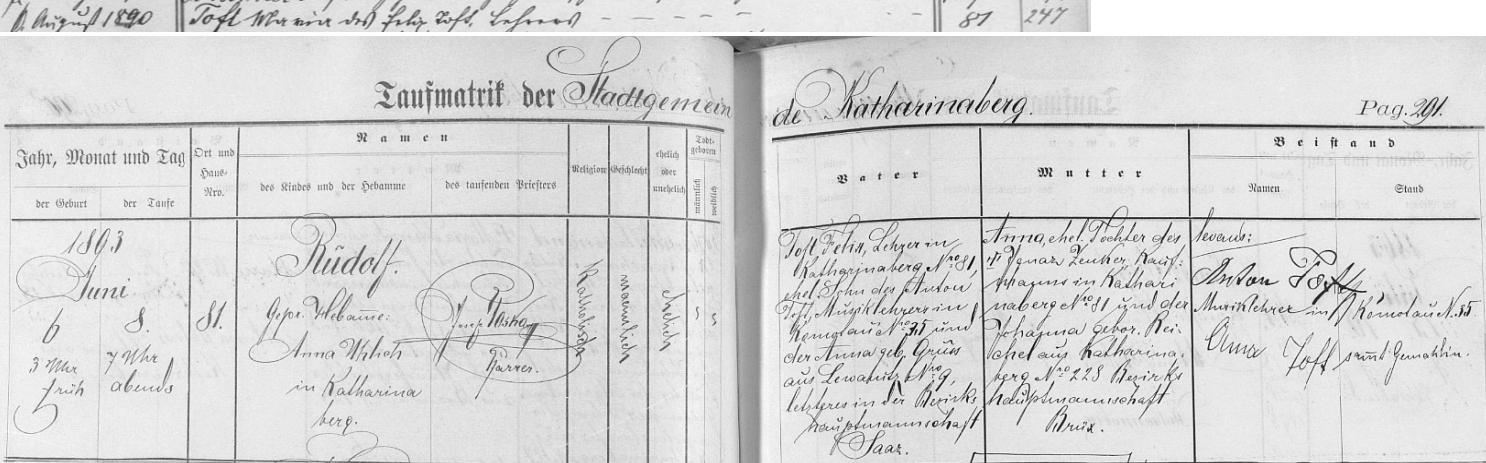 August 1890 Toft Maria des Felix Toft, Lehrers — — — — — 81 247
Taufmatrik der Stadtgemein
de Katharinaberg.
Pag. 291.
Jahr, Monat und Tag
der Geburt
der Taufe
Ort und
Haus-
Nro.
Namen
des Kindes und der Hebamme
des taufenden Priesters
Religion
Geschlecht
ehelich
oder
unehelich
Todt-
geboren
männlich
weiblich
Vater
Mutter
Beistand
Namen
Stand
1893
Juni
6
3 Uhr
früh
8.
7 Uhr
abends
81.
Rudolf.
Gepr. Hebame:
Anna
in Katharina
berg.
Josef
Pfarrer.
katholisch
maennlich
ehelich
Toft Felix, Lehrer in
Katharinaberg Nro 81,
ehel. Sohn des Anton
Toft, Musiklehrers in
Komotau Nro 35 und
der Anna geb. Grüss
aus Lewanitz Nro 9,
letzteres in der Bezirks
hauptmannschaft
Saaz.
Anna, ehel. Tochter des
Ignaz Zenker, Kauf-
manns in Kathari
naberg Nro 81 und der
Johanna gebor. Rei-
chel aus Katharina.
berg Nro 228 Bezirks
hauptmannschaft
Brüx.
levans:
Anton Toft
Musiklehrer in Komotau N. 35
Anna Toft sammt Gemahlin.